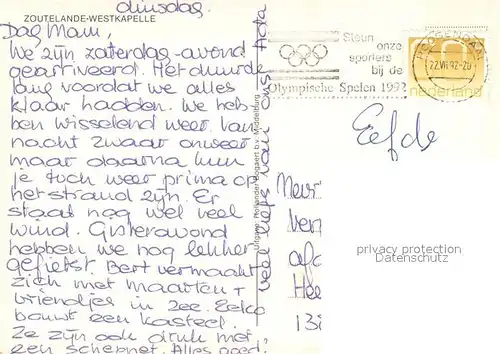 ZOUTELANDE-WESTKAPELLE
dinsdag.
Dag Mam,
We zijn zaterdag-avond
gearriveerd. Het duurde
lang voordat we alles
klaar hadden. We heb-
ben wisselend weer. Van
nacht zwaar onweer
maar daarna kun
je toch weer prima op
het strand zijn. Er
staat nog wel veel
wind. Gisteravond
hebben we nog lekker
gefietst. Bert vermaakt
zich met maarten +
vriendjes in zee. Eelco
bouwt een kasteel.
Ze zijn ook druk met
een schepnet. Alles goed!
veel liefs van ons
Uitgave: Hollander-Bogaert b.v. Middelburg
Steun
onze
sporters
bij de
Olympische Spelen 1992
22.VII.92-20
nederland
Eefde
privacy protection
Datenschutz